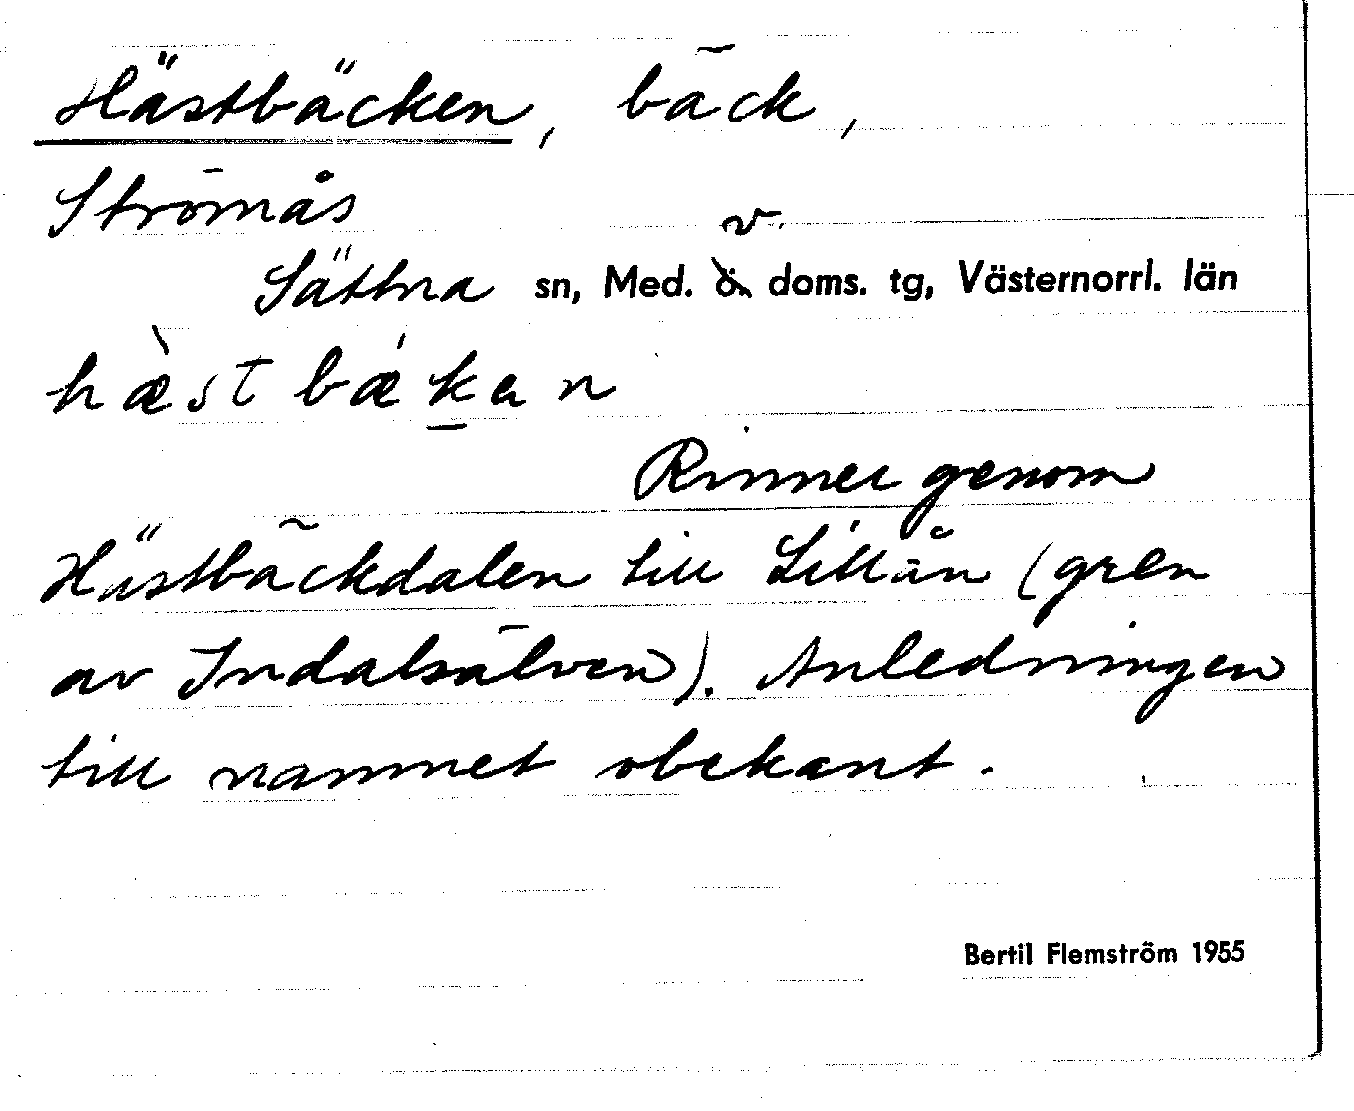 Hästbäcken, bäck,
Strömås
Sättna sn, Med. v. doms. tg, Västernorrl. län
hæ̀st bǽḵen
Rinner genom
Hästbäckdalen till Lillån (gren
av Indalsälven). Anledningen
till namnet obekant.
Bertil Flemström 1955